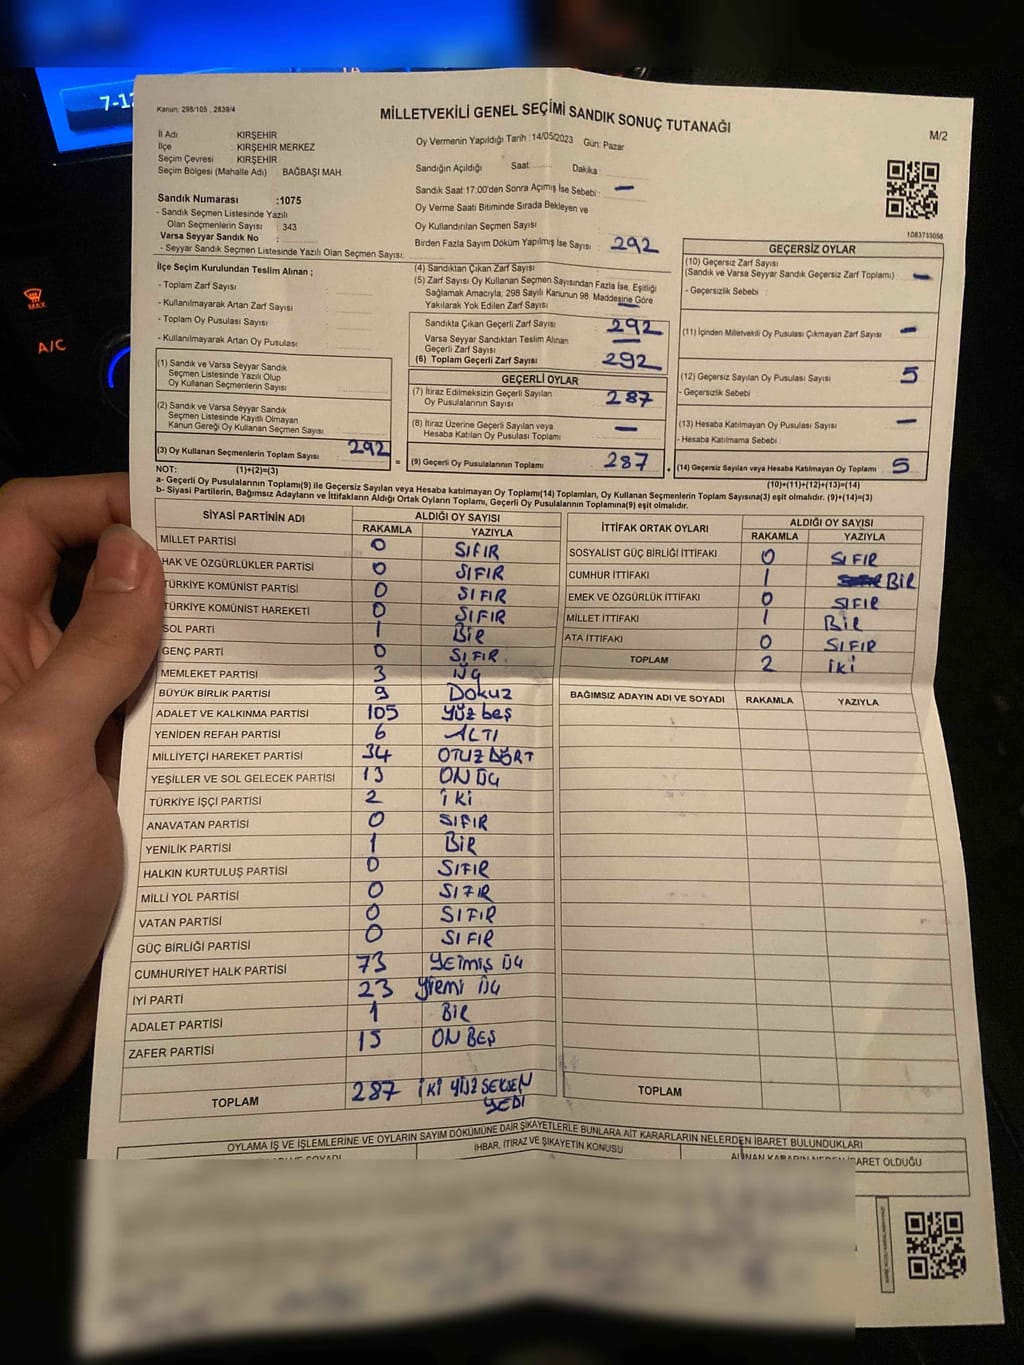 7-12
MAX
A/C
Kanun: 298/105 , 2839/4
MİLLETVEKİLİ GENEL SEÇİMİ SANDIK SONUÇ TUTANAĞI
M/2
İl Adı KIRŞEHİR
İlçe KIRŞEHİR MERKEZ
Seçim Çevresi KIRŞEHİR
Seçim Bölgesi (Mahalle Adı) BAĞBAŞI MAH.
Sandık Numarası :1075
- Sandık Seçmen Listesinde Yazılı
Olan Seçmenlerin Sayısı 343
Varsa Seyyar Sandık No :
- Seyyar Sandık Seçmen Listesinde Yazılı Olan Seçmen Sayısı:
İlçe Seçim Kurulundan Teslim Alınan ;
- Toplam Zarf Sayısı :
- Kullanılmayarak Artan Zarf Sayısı :
- Toplam Oy Pusulası Sayısı :
- Kullanılmayarak Artan Oy Pusulası
(1) Sandık ve Varsa Seyyar Sandık
Seçmen Listesinde Yazılı Olup
Oy Kullanan Seçmenlerin Sayısı
(2) Sandık ve Varsa Seyyar Sandık
Seçmen Listesinde Kayıtlı Olmayan
Kanun Gereği Oy Kullanan Seçmen Sayısı
(3) Oy Kullanan Seçmenlerin Toplam Sayısı 292
Oy Vermenin Yapıldığı Tarih : 14/05/2023 Gün: Pazar
Sandığın Açıldığı Saat: Dakika:
Sandık Saat 17:00'den Sonra Açımış İse Sebebi : —
Oy Verme Saati Bitiminde Sırada Bekleyen ve
Oy Kullandırılan Seçmen Sayısı
Birden Fazla Sayım Döküm Yapılmış İse Sayısı : 292
(4) Sandıktan Çıkan Zarf Sayısı
(5) Zarf Sayısı Oy Kullanan Seçmen Sayısından Fazla İse, Eşitliği
Sağlamak Amacıyla, 298 Sayılı Kanunun 98. Maddesine Göre
Yakılarak Yok Edilen Zarf Sayısı —
Sandıkta Çıkan Geçerli Zarf Sayısı 292
Varsa Seyyar Sandıktan Teslim Alınan
Geçerli Zarf Sayısı —
(6) Toplam Geçerli Zarf Sayısı 292
GEÇERLİ OYLAR
(7) İtiraz Edilmeksizin Geçerli Sayılan
Oy Pusulalarının Sayısı 287
(8) İtiraz Üzerine Geçerli Sayılan veya
Hesaba Katılan Oy Pusulası Toplamı —
= (9) Geçerli Oy Pusulalarının Toplamı 287
1083733058
GEÇERSİZ OYLAR
(10) Geçersiz Zarf Sayısı
(Sandık ve Varsa Seyyar Sandık Geçersiz Zarf Toplamı) : —
- Geçersizlik Sebebi :
(11) İçinden Milletvekili Oy Pusulası Çıkmayan Zarf Sayısı —
(12) Geçersiz Sayılan Oy Pusulası Sayısı 5
- Geçersizlik Sebebi :
(13) Hesaba Katılmayan Oy Pusulası Sayısı —
- Hesaba Katılmama Sebebi :
+ (14) Geçersiz Sayılan veya Hesaba Katılmayan Oy Toplamı 5
NOT: (1)+(2)=(3) (10)+(11)+(12)+(13)=(14)
a- Geçerli Oy Pusulalarının Toplamı(9) ile Geçersiz Sayılan veya Hesaba katılmayan Oy Toplamı(14) Toplamları, Oy Kullanan Seçmenlerin Toplam Sayısına(3) eşit olmalıdır. (9)+(14)=(3)
b- Siyasi Partilerin, Bağımsız Adayların ve İttifakların Aldığı Ortak Oyların Toplamı, Geçerli Oy Pusulalarının Toplamına(9) eşit olmalıdır.
SİYASİ PARTİNİN ADI ALDIĞI OY SAYISI
RAKAMLA YAZIYLA
MİLLET PARTİSİ 0 SIFIR
HAK VE ÖZGÜRLÜKLER PARTİSİ 0 SIFIR
TÜRKİYE KOMÜNİST PARTİSİ 0 SIFIR
TÜRKİYE KOMÜNİST HAREKETİ 0 SIFIR
SOL PARTİ 1 BİR
GENÇ PARTİ 0 SIFIR
MEMLEKET PARTİSİ 3 ÜÇ
BÜYÜK BİRLİK PARTİSİ 9 Dokuz
ADALET VE KALKINMA PARTİSİ 105 yüz beş
YENİDEN REFAH PARTİSİ 6 ALTI
MİLLİYETÇİ HAREKET PARTİSİ 34 OTUZ DÖRT
YEŞİLLER VE SOL GELECEK PARTİSİ 13 ON ÜÇ
TÜRKİYE İŞÇİ PARTİSİ 2 İKİ
ANAVATAN PARTİSİ 0 SIFIR
YENİLİK PARTİSİ 1 BİR
HALKIN KURTULUŞ PARTİSİ 0 SIFIR
MİLLİ YOL PARTİSİ 0 SIFIR
VATAN PARTİSİ 0 SIFIR
GÜÇ BİRLİĞİ PARTİSİ 0 SIFIR
CUMHURİYET HALK PARTİSİ 73 YETMİŞ ÜÇ
İYİ PARTİ 23 yirmi üç
ADALET PARTİSİ 1 BİR
ZAFER PARTİSİ 15 ON BEŞ
TOPLAM 287 İKİ YÜZ SEKSEN
YEDİ
İTTİFAK ORTAK OYLARI ALDIĞI OY SAYISI
RAKAMLA YAZIYLA
SOSYALİST GÜÇ BİRLİĞİ İTTİFAKI 0 SIFIR
CUMHUR İTTİFAKI 1 BİR
EMEK VE ÖZGÜRLÜK İTTİFAKI 0 SIFIR
MİLLET İTTİFAKI 1 BİR
ATA İTTİFAKI 0 SIFIR
TOPLAM 2 İKİ
BAĞIMSIZ ADAYIN ADI VE SOYADI RAKAMLA YAZIYLA
TOPLAM
OYLAMA İŞ VE İŞLEMLERİNE VE OYLARIN SAYIM DÖKÜMÜNE DAİR ŞİKAYETLERLE BUNLARA AİT KARARLARIN NELERDEN İBARET BULUNDUKLARI
İHBAR, İTİRAZ VE ŞİKAYETİN KONUSU
ALINAN KARARIN NEDEN İBARET OLDUĞU